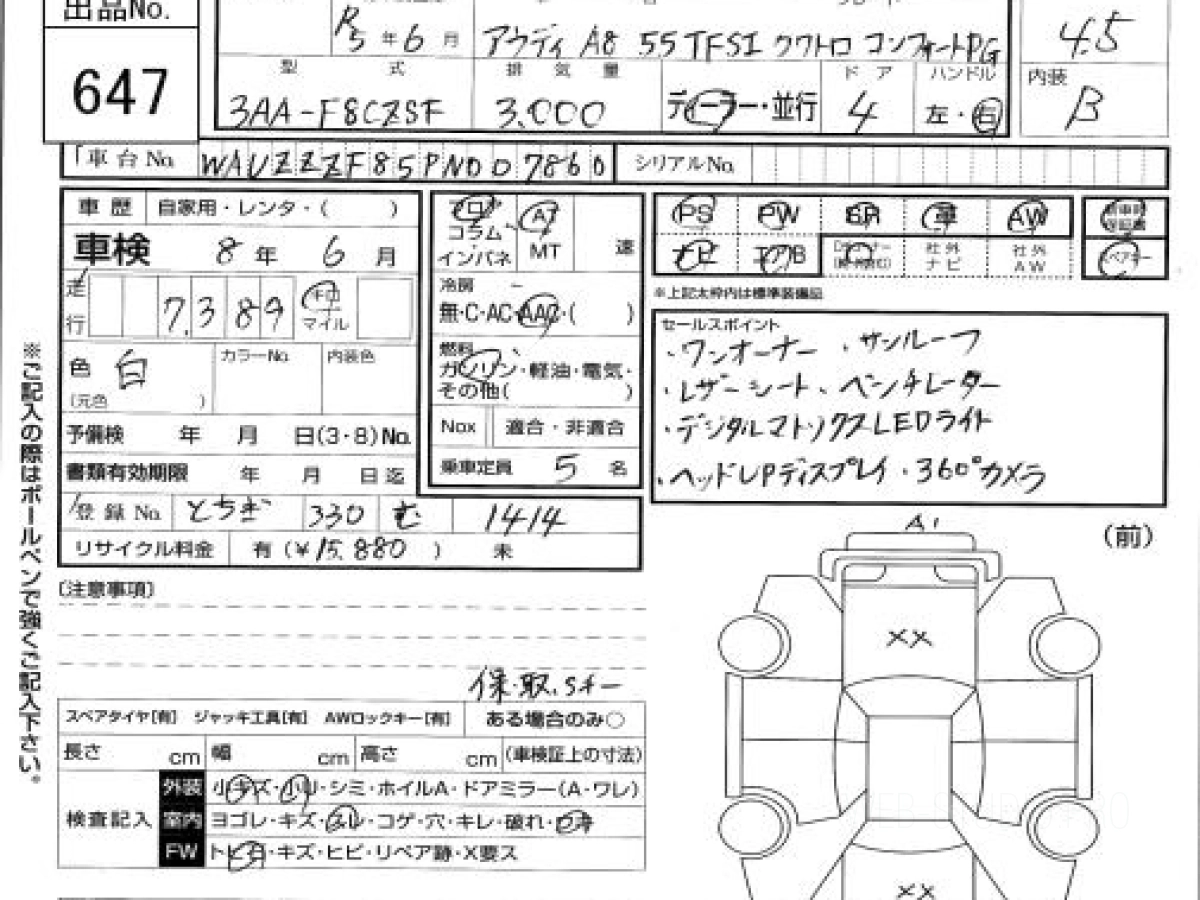 出品No.
647
R5年6月 アウディ A8 55TFSI クワトロ コンフォートPG
4.5
型式 排気量 ドア ハンドル 内装
3AA-F8CZSF 3.000 ディーラー・並行 4 左・右 B
車台No. WAUZZZF85PN007860 シリアルNo.
車歴 自家用・レンタ・( )
車検 8年 6月
走行 7,389 キロ マイル
色 白 カラーNo. 内装色
(元色 )
予備検 年 月 日(3・8)No.
書類有効期限 年 月 日迄
登録No. とちぎ 330 む 1414
リサイクル料金 有(¥15,880 ) 未
フロア
コラム
インパネ
AT
MT
速
冷房
無・C・AC・AAC・( )
燃料
ガソリン・軽油・電気・
その他( )
Nox 適合・非適合
乗車定員 5 名
PS PW SR 革 AW 新車時保証書
ナビ エアB 社外ナビ 社外AW スペアキー
※上記太枠内は標準装備品
セールスポイント
・ワンオーナー ・サンルーフ
・レザーシート、ベンチレーター
・デジタルマトリックスLEDライト
・ヘッドUPディスプレイ・360°カメラ
※ご記入の際はボールペンで強くご記入下さい。
[注意事項]
保・取、Sキー
スペアタイヤ[有] ジャッキ工具[有] AWロックキー[有] ある場合のみ○
長さ cm 幅 cm 高さ cm (車検証上の寸法)
検査記入
外装 小キズ・小凹・シミ・ホイルA・ドアミラー(A・ワレ)
室内 ヨゴレ・キズ・スレ・コゲ・穴・キレ・破れ・ウキ
FW トビ石・キズ・ヒビ・リペア跡・X要ス
A1
(前)
××
××